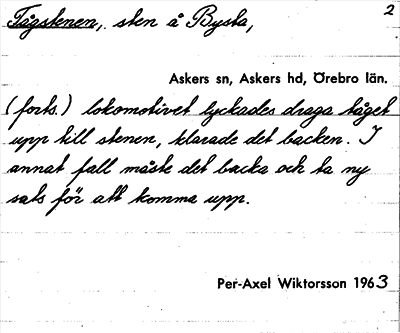 Tågstenen, sten å Bysta,
2
Askers sn, Askers hd, Örebro län.
(forts.) lokomotivet lyckades draga tåget
upp till stenen, klarade det backen. I
annat fall måste det backa och ta ny
sats för att komma upp.
Per-Axel Wiktorsson 1963